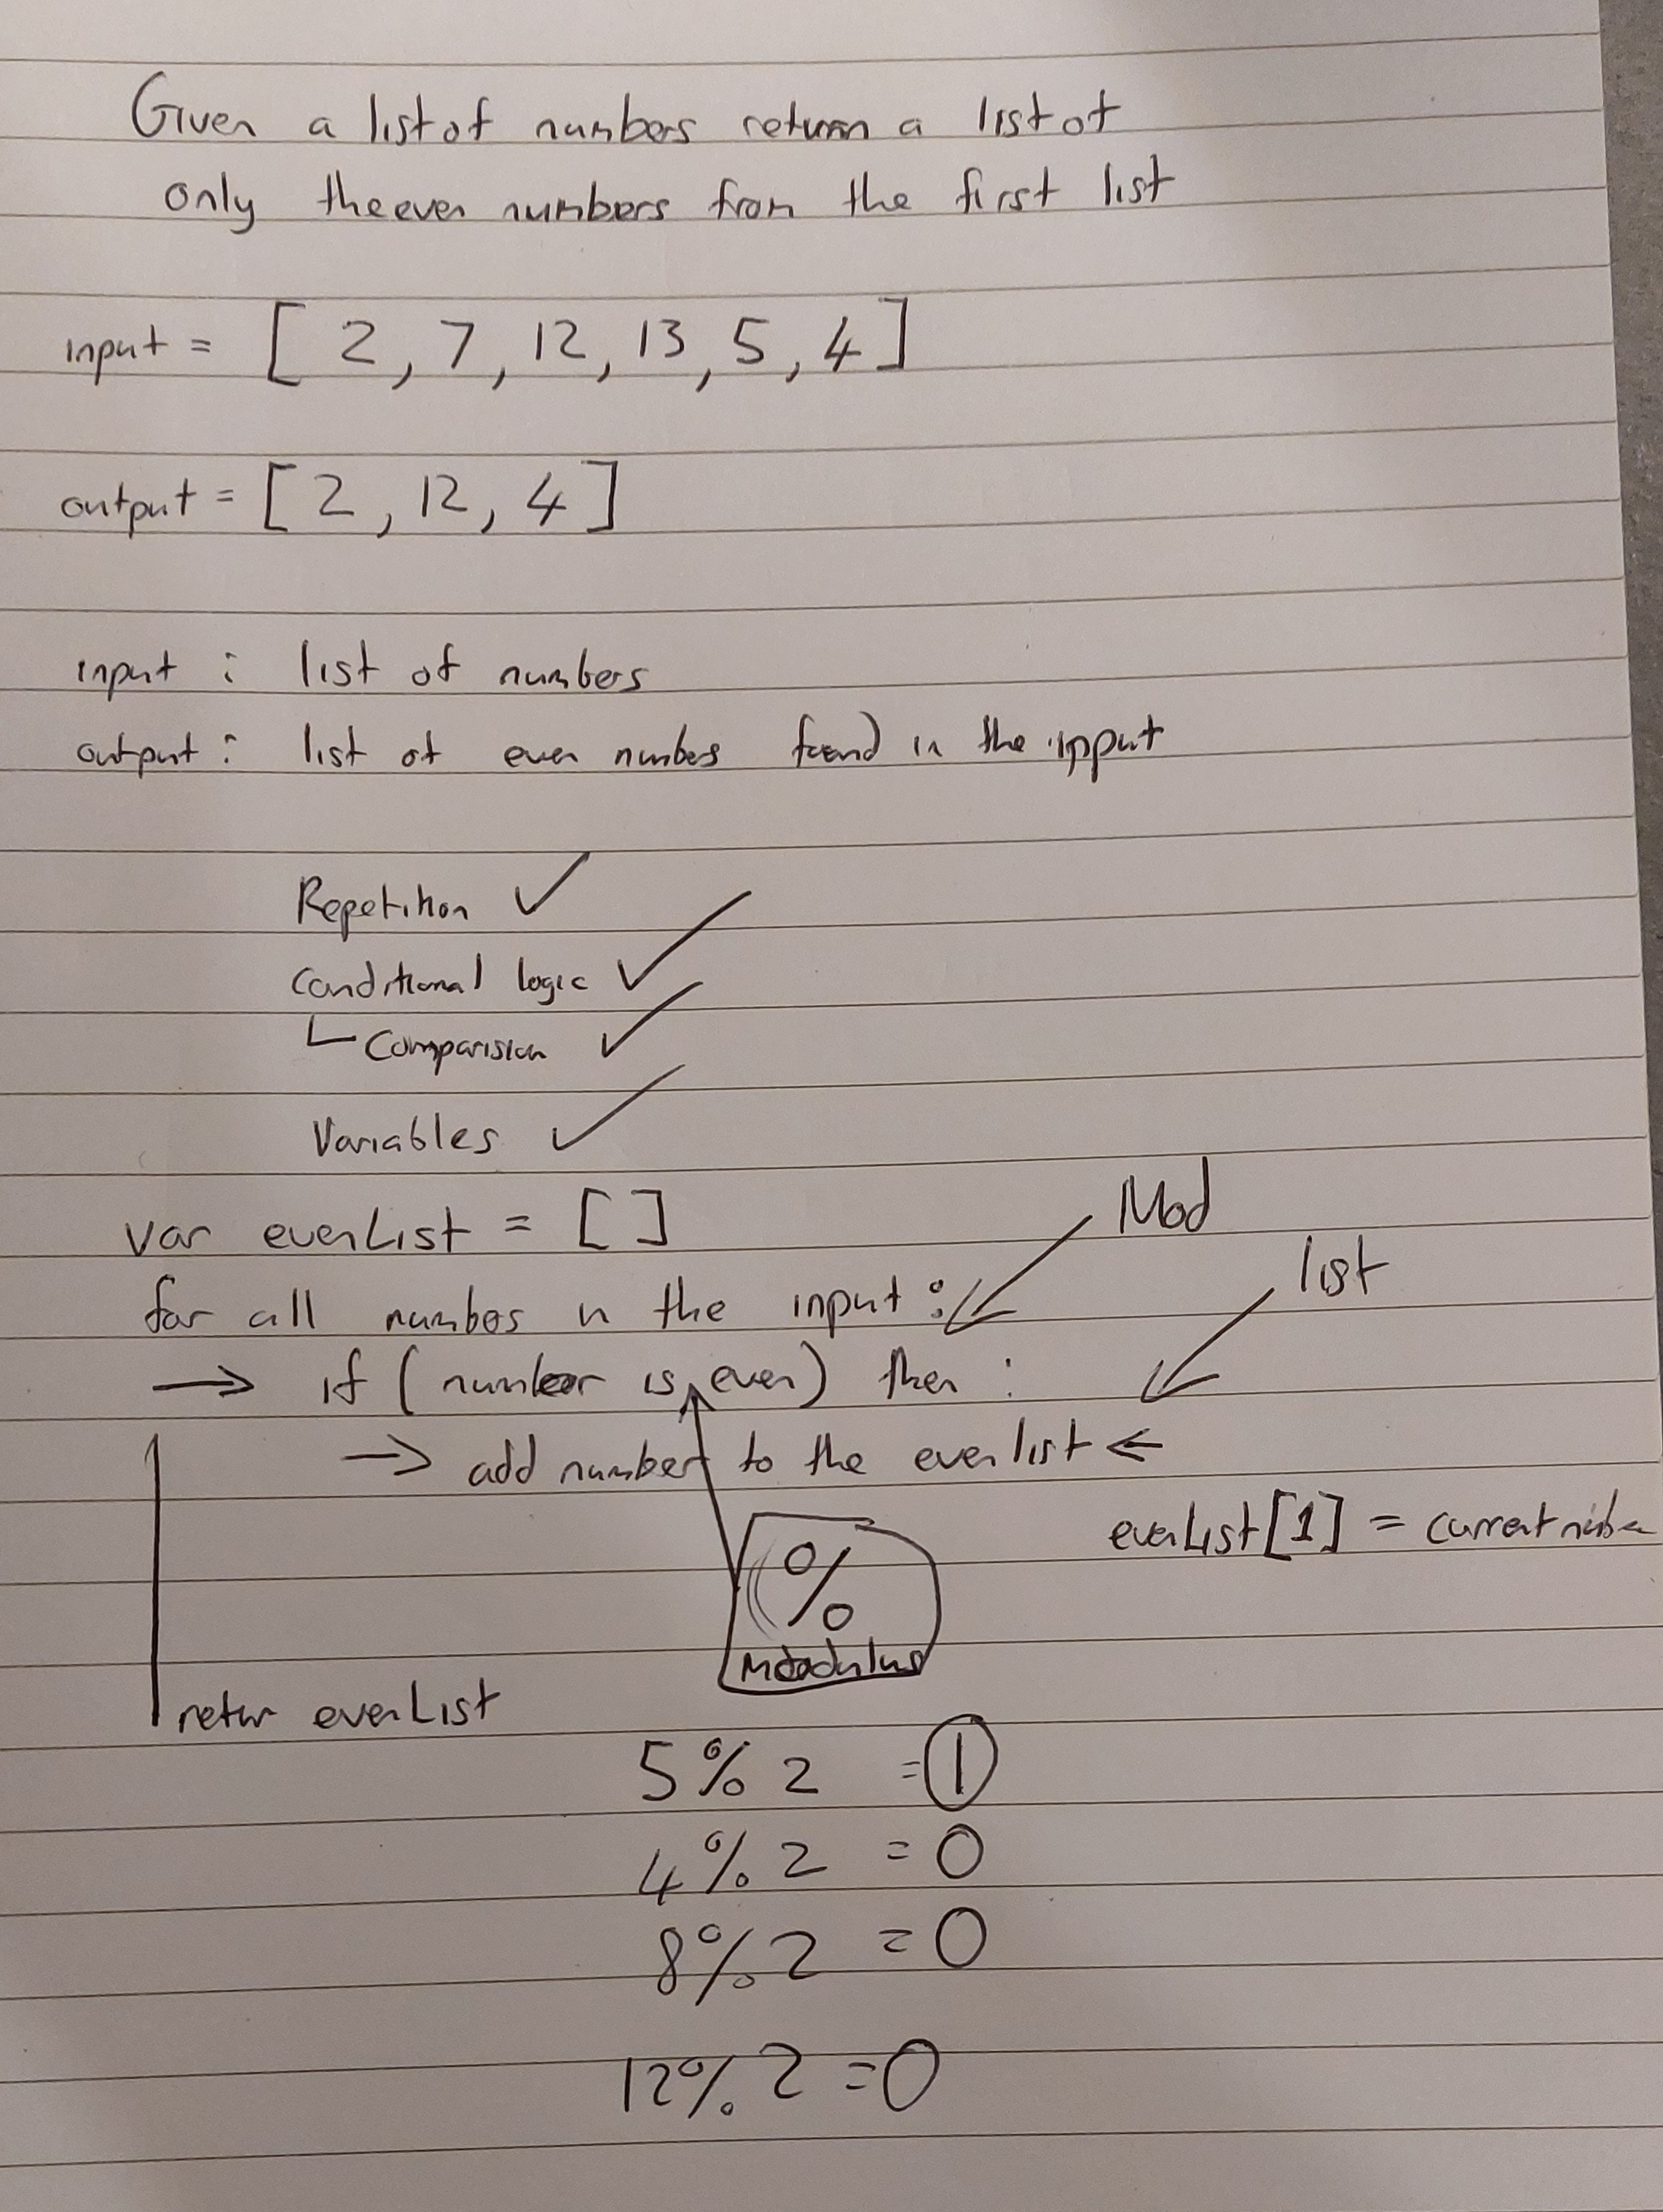 Given a list of numbers return a list of
only the even numbers from the first list
input = [ 2, 7, 12, 13, 5, 4 ]
output = [ 2, 12, 4 ]
input : list of numbers
output : list of even numbers found in the ipput
Repetition ✓
Conditional logic ✓
Comparision ✓
Variables ✓
var evenList = [ ]
Mod
for all numbers in the input :
list
→ if ( number is even ) then :
→ add number to the even list ←
evenList[1] = current number
%
Modulus
return evenList
5 % 2 = 1
4 % 2 = 0
8 % 2 = 0
12 % 2 = 0